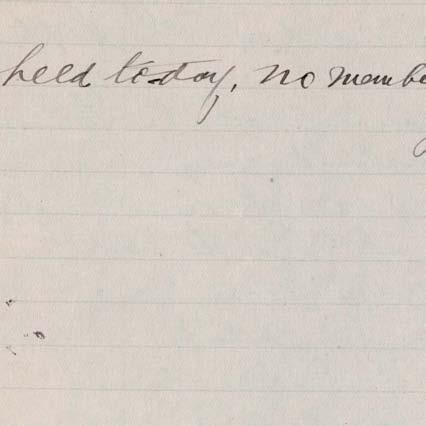 held to-day, no membe